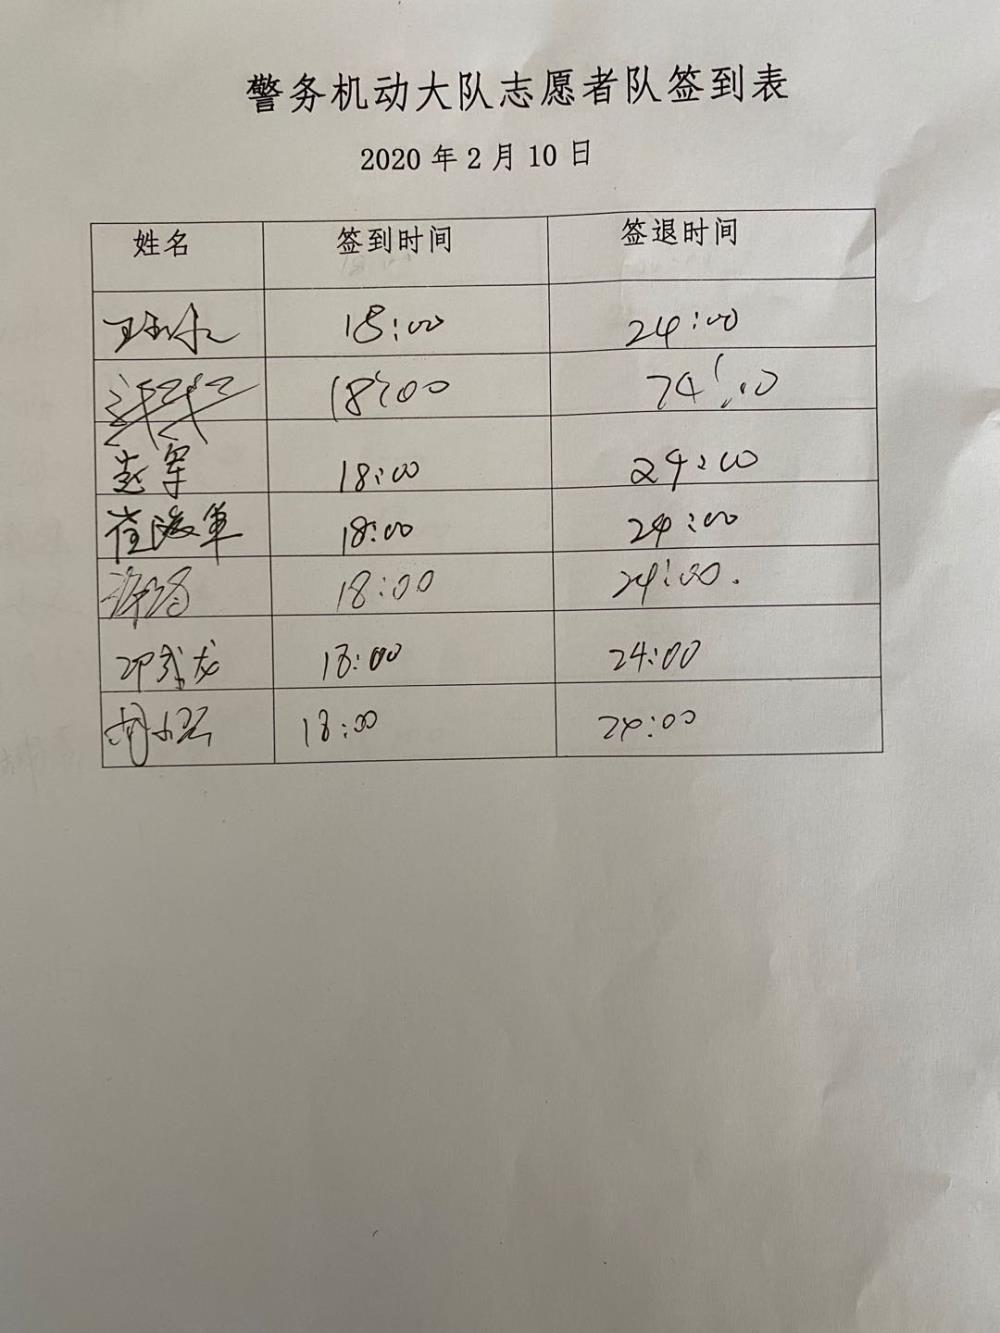 警务机动大队志愿者队签到表
2020 年 2 月 10 日
姓名 签到时间 签退时间
18:00 24:00
18:00 24:00
赵军 18:00 24:00
崔海军 18:00 24:00
18:00 24:00.
邓成龙 18:00 24:00
18:00 24:00